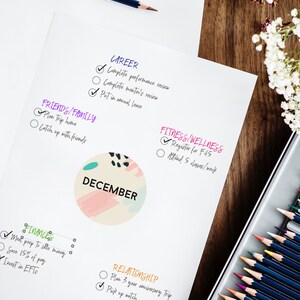 CAREER
Complete performance review
Complete mentor's review
Put in annual leave
FRIENDS/FAMILY
Plan trip home
Catch up with friends
FITNESS/WELLNESS
Register for F45
Attend 3 classes/week
DECEMBER
FINANCES
More pay to bills money
Save 15% of pay
Invest in ETFs
RELATIONSHIP
Plan 3 year anniversary trip
Pick up watch